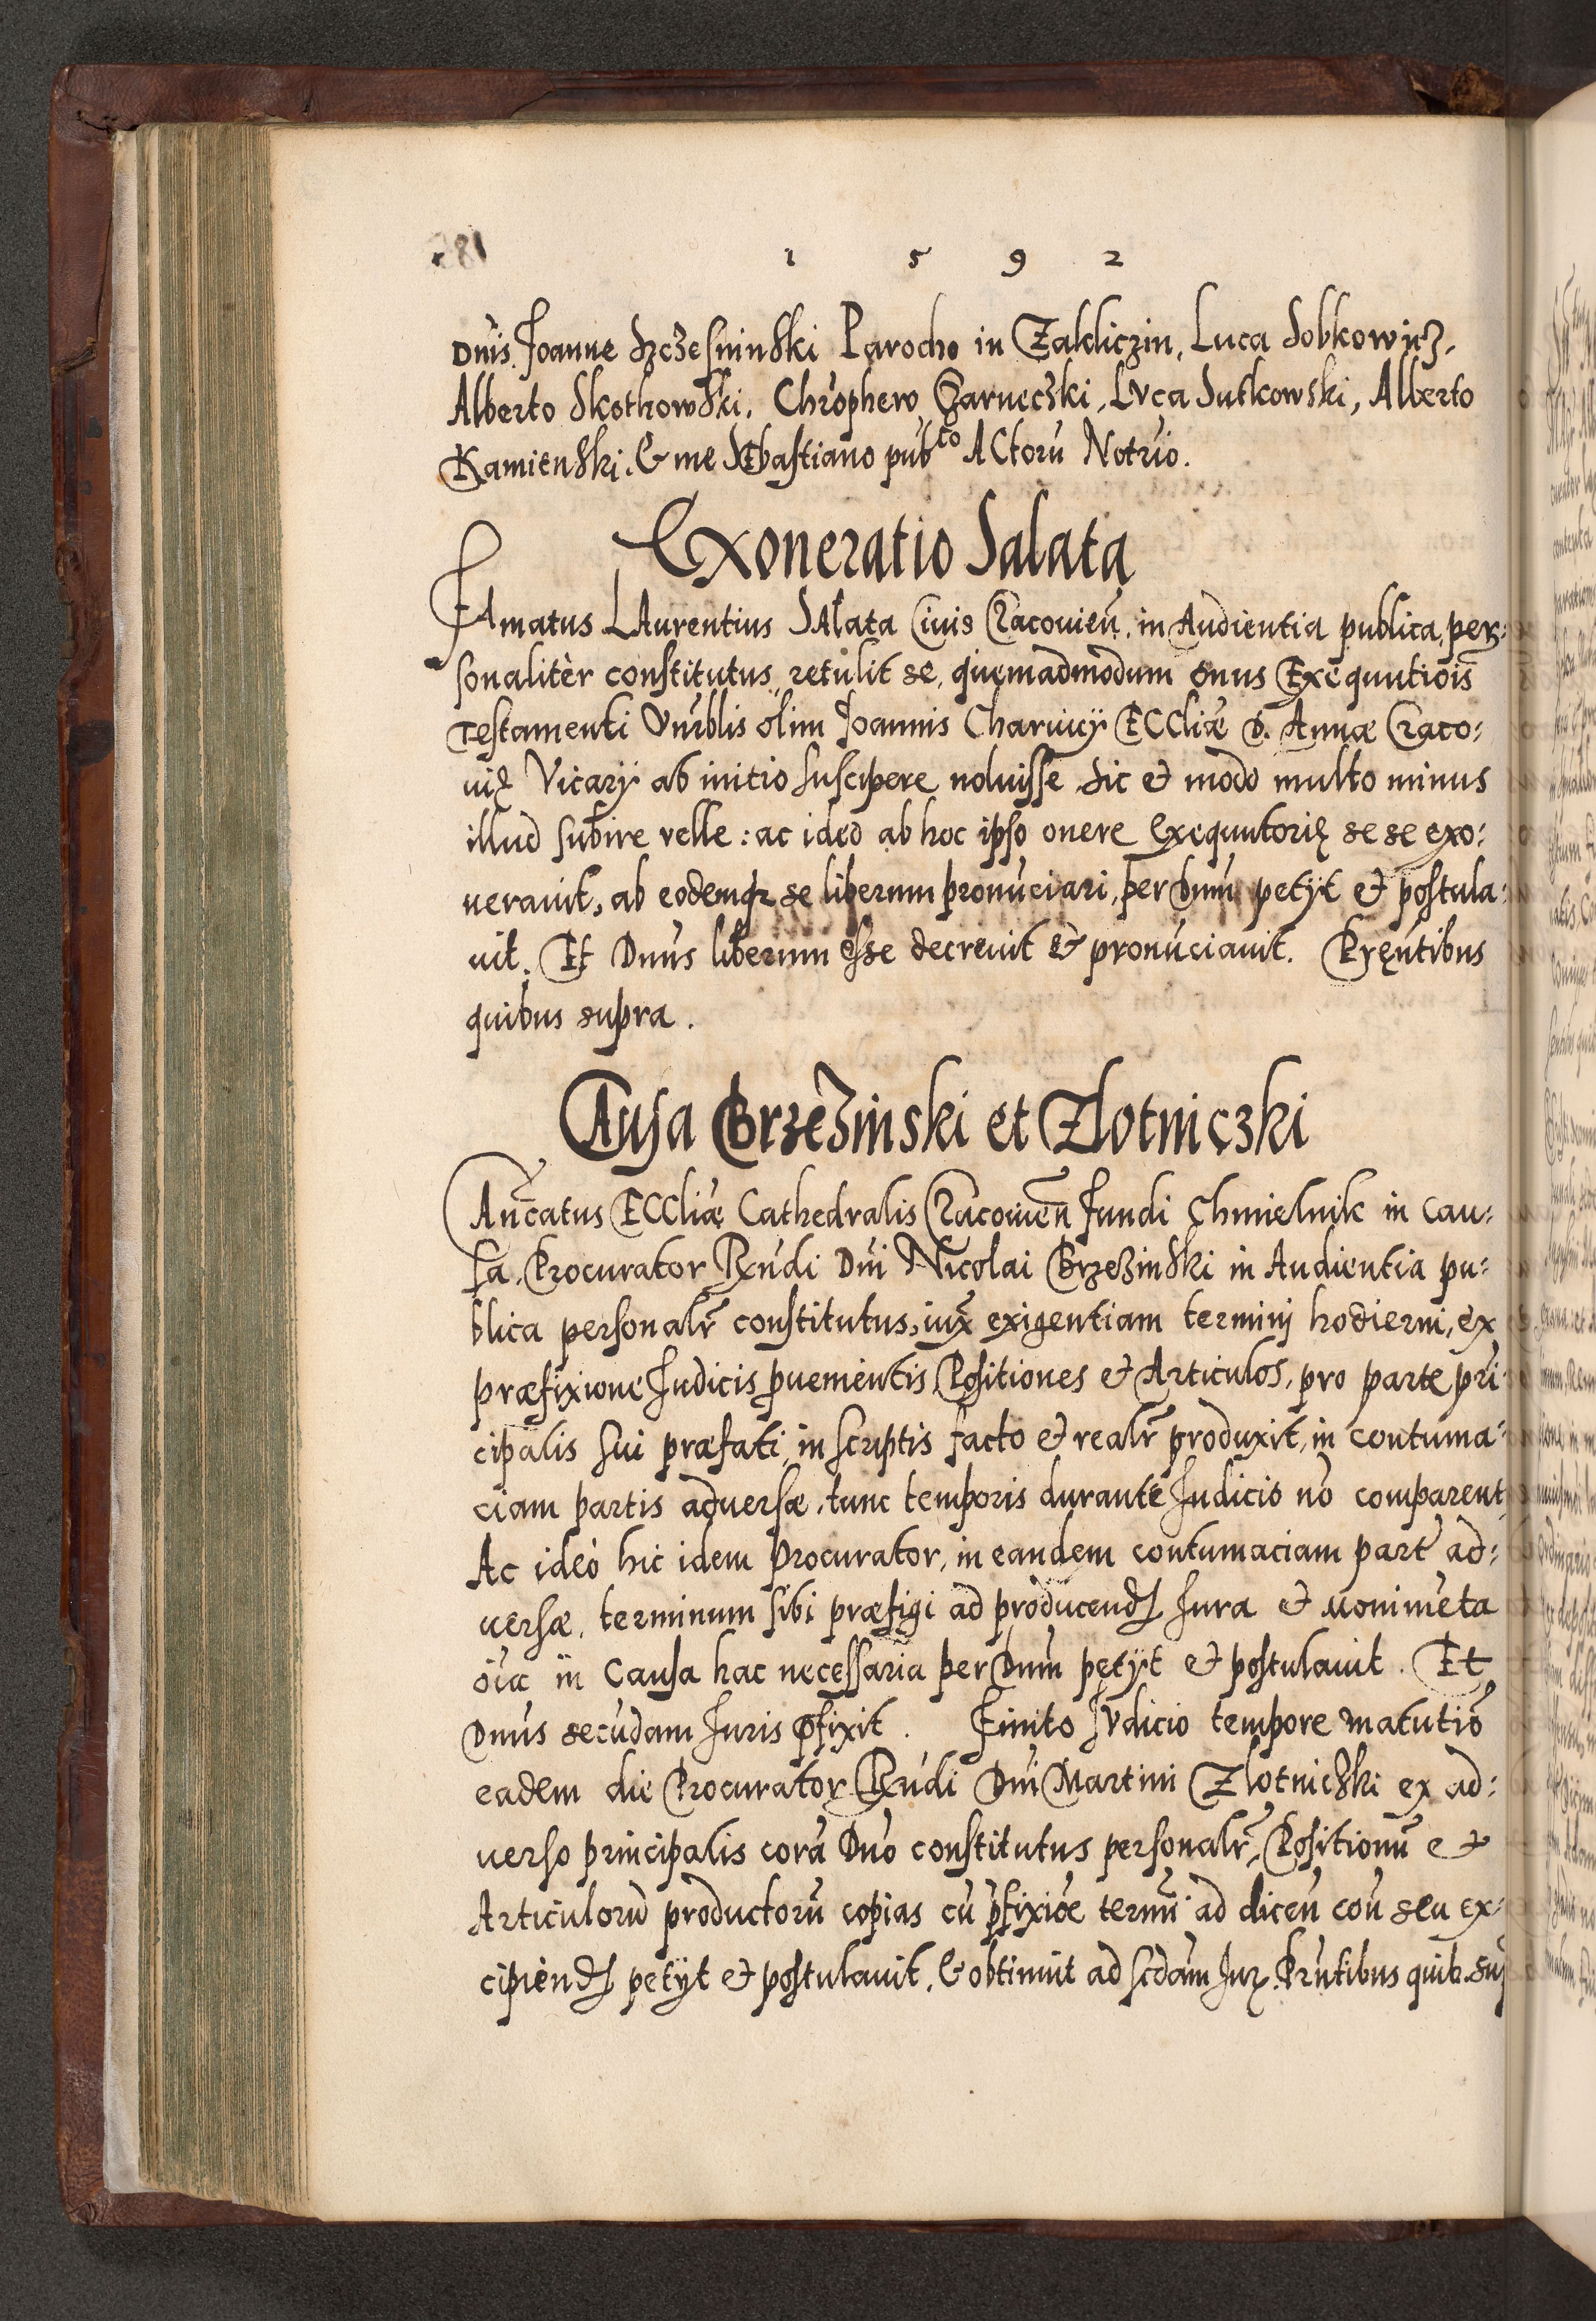 1 5 9 2
Dnis. Joanne Szczesninski Parocho in Zakliczin, Luca Sobkowicz,
Alberto Skothowski, Chrophero Czarneczki, Luca Sutkowski, Alberto
Kamienski. & me Sebastiano pubco Actorū Notrio.
Exoneratio Salata
Famatus Laurentius Salata Ciuis Cracouień. in Audientia publica, per-
sonalitèr constitutus, retulit se, quemadmodum onus Exequutiois
Testamenti Vnrblis olim Joannis Charuicij Eccliæ D. Annæ Craco-
uię Vicarÿ ab initio suscipere noluisse sic & modo multo minus
illud subire velle: ac ideo ab hoc ipso onere Exequutorię se se exo-
nerauit, ab eodemqz se liberum pronūciari, per Dnum petÿt & postula-
uit. Et Dnus liberum esse decreuit & pronūciauit. Pręntibus
quibus supra.
Causa Brzezinski et Zlotniczki
Cancatus Eccliæ Cathedralis Cracouień fundi Chmielnik in Cau-
sa, Procurator Rndi Dni Nicolai Brzezinski in Audientia pu-
blica personalr constitutus, iux exigentiam termini hodierni, ex
præfixione Judicis puenientis Positiones & Articulos, pro parte pri
cipalis sui præfati, in scriptis facto & realr produxit, in contuma-
ciam partis aduersæ, tunc temporis durante Judicio nō comparent
Ac ideò hic idem Procurator, in eandem contumaciam part ad-
uersæ, terminum sibi præfigi ad producend Jura & monimēta
oia in Causa hac necessaria per Dnum petÿt & postulauit. Et
Dnus secūdam Juris pfixit. Finito Judicio tempore matutio
eadem die Procurator Rndi Dni Martini Zlotniczki ex ad-
uerso principalis corā Dno constitutus personalr, Positionū &
Articulorū productorū copias cū pfixioe termi ad dicen con seu ex-
cipiend petÿt & postulauit, & obtinuit ad scdam Jur. Prntibus quib. su